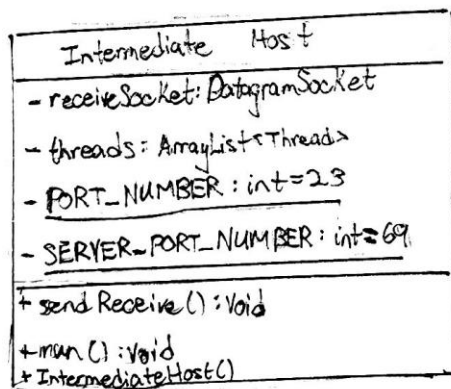 Intermediate Host
- receiveSocket: DatagramSocket
- threads: ArrayList<Thread>
- PORT_NUMBER: int=23
- SERVER_PORT_NUMBER: int=69
+ sendReceive(): Void
+ main(): Void
+ IntermediateHost()